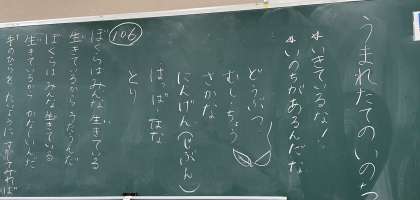 うまれたてのいのち
*いきているな!
*いのちがあるんだな
どうぶつ
むし・ちょう
さかな
にんげん(じぶん)
はっぱ・はな
とり
106
ぼくらはみんな生きている
生きているからうたうんだ
ぼくらはみんな生きている
生きているからかなしいんだ
手のひらをたいように すかしてみれば